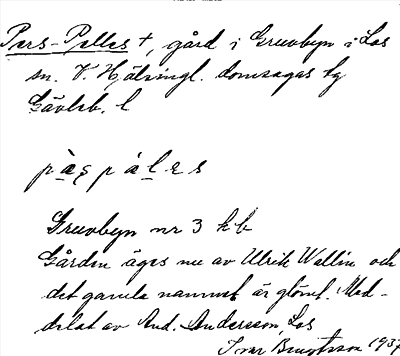 Pers-Pelles +, gård i Gruvbyn i Los
sn. V. Hälsingl. domsagas tg
Gävleb. l
pàʂ páles
Gruvbyn nr 3 kb
Gården äges nu av Ulrik Wallin och
det gamla namnet är glömt. Med-
delat av And. Andersson, Los
Ivar Bengtsson 1937